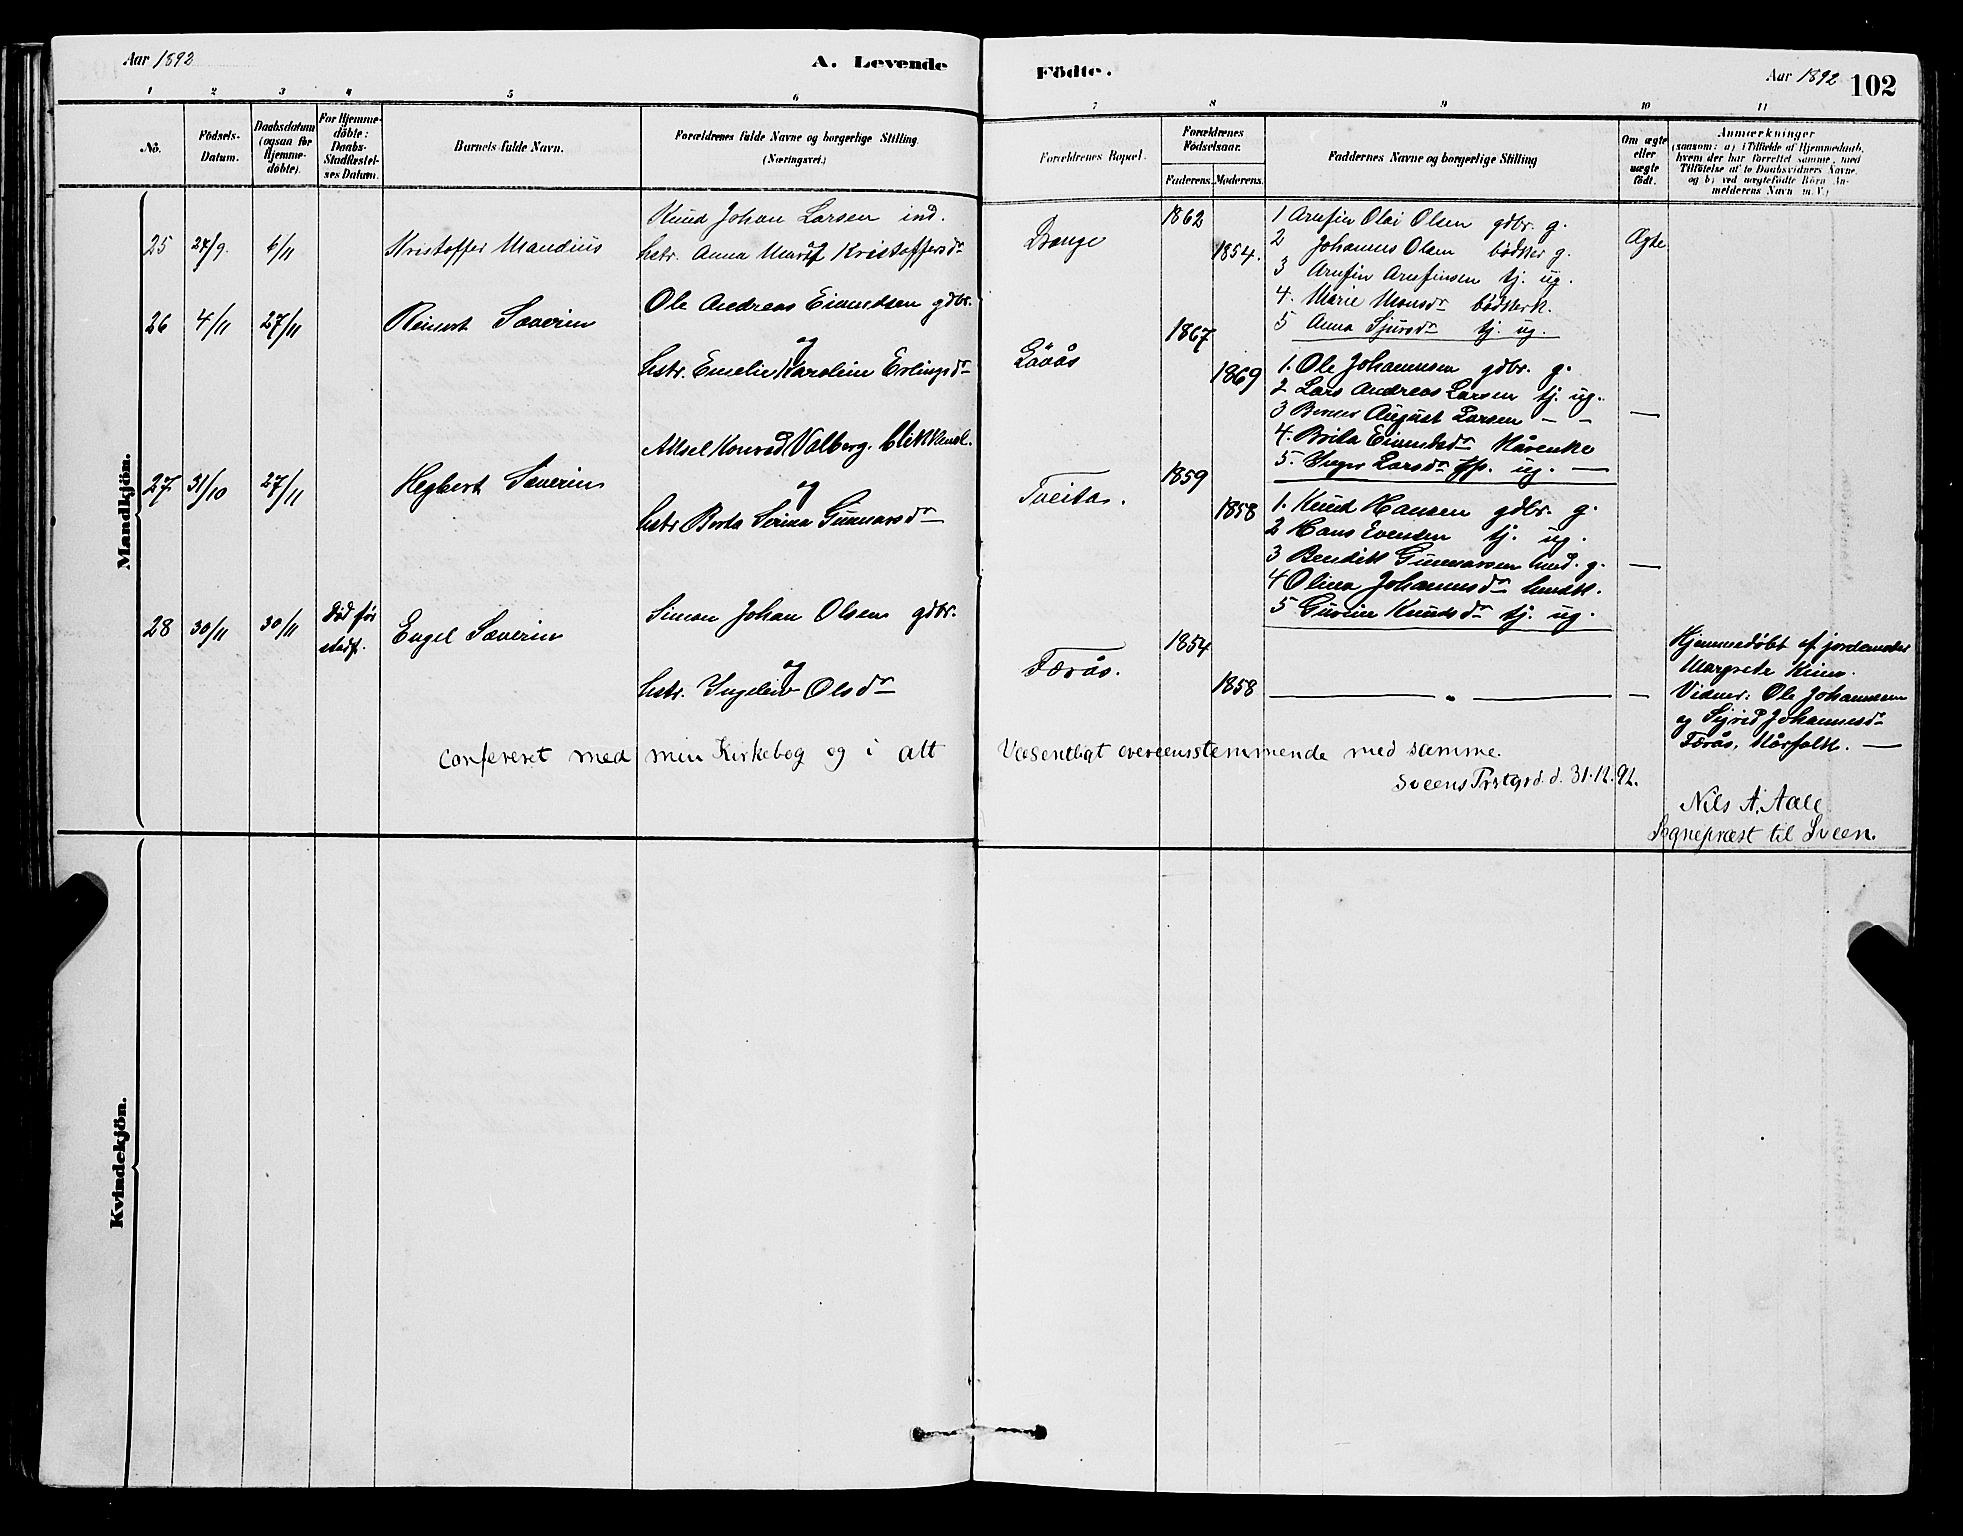 Aar 1892
A. Levende
Födte.
Aar 1892
102
1 2 3 4 5 6 7 8 9 10 11
No.
Födsels-
Datum.
Daabsdatum
(ogsaa for
Hjemme-
döbte).
For Hjemme-
döbte:
Daabs-
Stadfæstel-
ses Datum.
Barnets fulde Navn.
Forældrenes fulde Navne og borgerlige Stilling
(Næringsvei.)
Forældrenes Bopæl.
Forældrenes
Födselsaar.
Faderens. Moderens.
Faddernes Navne og borgerlige Stilling
Om ægte
eller
uægte
födt.
Anmærkninger
(saasom: a) i Tilfælde af Hjemmedaab,
hvem der har forrettet samme, med
Tilföielse af to Daabsvidners Navne,
og b) ved uægtefödte Börn An-
melderens Navn m. V.)
Mandkjön.
25 27/9. 6/11 Kristoffer Mandius
Knud Johan Larsen ind.
hstr. Anna Kristoffersdr
1862
1854.
1 Arnfin Olai Olsen gdbr. g.
2 Johannes Olsen bødker g.
3 Arnfin Arnfinsen tj. ug.
4. Marie Monsdr bødkerk.
5 Anna Sjursdr tj. ug.
Ægte
26 4/11 27/11 Reinert Severin
Ole Andreas Eimedsen gdbr.
og
hstr. Emelie Karoline Erlingsdr
Låvås
1867
1869
1. Ole Johannesen gdbr. g.
2 Lars Andreas Larsen tj. ug.
3 August Larsen — —
4. Brita Kårenke
5. Inger Larsdr ug. —
—
27 31/10 27/11 Hegbert Severin
Aksel Konrad Valberg, blikkensl.
og
hstr Berta Serina Gunnarsdr
Tveita.
1859
1858
1. Knud Hansen gdbr. g.
2 Hans Evensen tj. ug.
3 Bendikt Gunnarsen hmd. g.
4 Olina Johannesdr hmdk.
5 Gurine Knudsdr tj. ug.
—
28 30/11 30/11 død før
stadf.
Engel Severin
Simon Johan Olsen gdbr.
og
hstr. Ingeleiv Olsdr
Færås.
1854
1858
— " — —
Hjemmedøbt af jordemoder
Margrete
Vidner: Ole Johannesen
og Sigrid Johannesdr
Færås, Kårfolk. —
confereret med min Kirkebog og i alt Væsentligt overeensstemmende med samme.
Sveens Prstgrd. d. 31.12.92.
Nils A. Aall
Sognepræst til Sveen.
Kvindekjön.